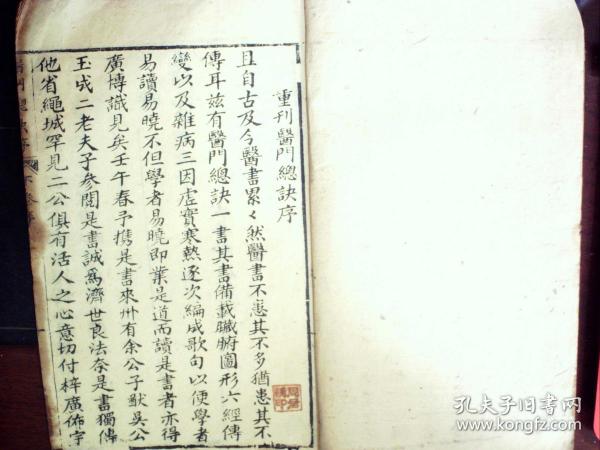 重刊醫門總訣序
且自古及今醫書累々然醫書不患其不多猶患其不
傳耳兹有醫門總訣一書其書備載臟腑圖形六經傳
變以及雜病三因虛實寒熱逐次編成歌句以便學者
易讀易曉不但學者易曉即業是道而讀是書者亦得
廣博識見矣壬午春予携是書來州有余公子猷吳公
玉成二老夫子參閱是書誠爲濟世良法奈是書獨傳
他省繩城罕見二公俱有活人之心意切付梓廣佈宇
醫門總訣序
孔夫子旧书网